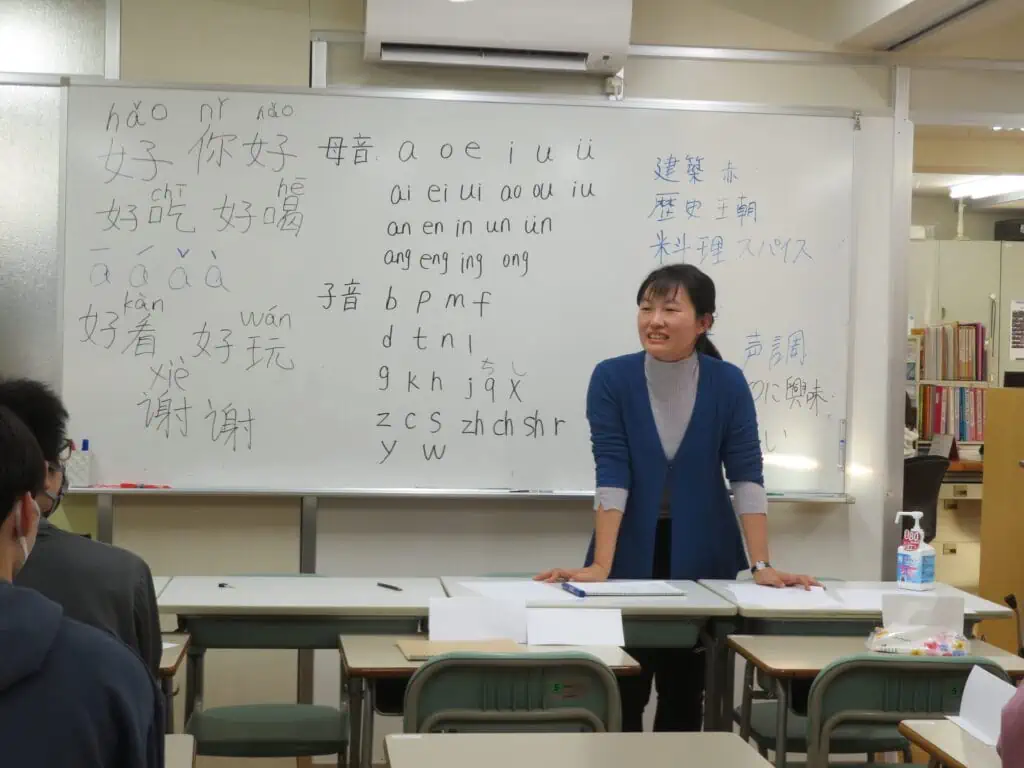 hǎo nǐ hǎo
好 你好
chī hē
好吃 好喝
ā á ǎ à
kàn wán
好看 好玩
xiè
谢谢
母音 a o e i u ü
ai ei ui ao ou iu
an en in un ün
ang eng ing ong
子音 b p m f
d t n l
ち し
g k h j q x
z c s zh ch sh r
y w
建築 赤
歴史 王朝
料理 スパイス
声調
のに興味
い